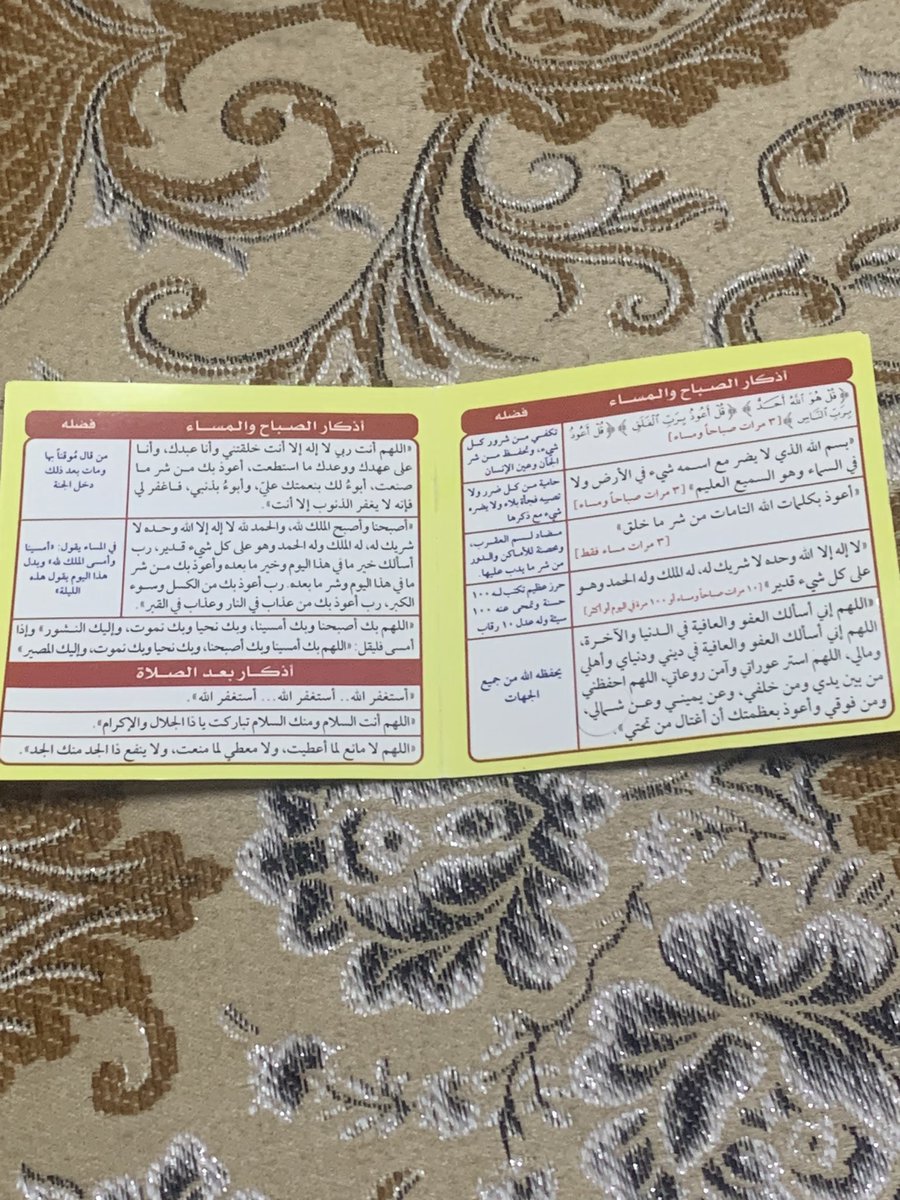 أذكار الصباح والمساء
فضله
﴿قُلْ هُوَ اللَّهُ أَحَدٌ﴾ ﴿قُلْ أَعُوذُ بِرَبِّ الْفَلَقِ﴾ ﴿قُلْ أَعُوذُ
بِرَبِّ النَّاسِ﴾ [٣ مرات صباحاً ومساء]
تكفي من شرور كل
شيء، وتحفظ من شر
الجان وعين الإنسان
«بسم الله الذي لا يضر مع اسمه شيء في الأرض ولا
في السماء وهو السميع العليم» [٣ مرات صباحاً ومساء]
حامية من كل ضرر ولا
تصيبه فجأة بلاء ولا يضره
شيء مع ذكرها
«أعوذ بكلمات الله التامات من شر ما خلق»
[٣ مرات مساء فقط]
مضاد لسم العقرب،
ومحصنة للأماكن والدور
من شر ما يدب عليها.
«لا إله إلا الله وحده لا شريك له، له الملك وله الحمد وهو
على كل شيء قدير» [١٠ مرات صباحاً ومساء أو ١٠٠ مرة في اليوم أو أكثر]
حرز عظيم تكتب له ١٠٠
حسنة وتمحى عنه ١٠٠
سيئة وله عدل ١٠ رقاب
«اللهم إني أسألك العفو والعافية في الدنيا والآخرة،
اللهم إني أسألك العفو والعافية في ديني ودنياي وأهلي
ومالي، اللهم استر عوراتي وآمن روعاتي، اللهم احفظني
من بين يدي ومن خلفي، وعن يميني وعن شمالي،
ومن فوقي وأعوذ بعظمتك أن أغتال من تحتي».
يحفظه الله من جميع
الجهات
أذكار الصباح والمساء
فضله
«اللهم أنت ربي لا إله إلا أنت خلقتني وأنا عبدك، وأنا
على عهدك ووعدك ما استطعت، أعوذ بك من شر ما
صنعت، أبوءُ لك بنعمتك عليّ، وأبوءُ بذنبي، فاغفر لي
فإنه لا يغفر الذنوب إلا أنت».
من قال مُوقناً بها
ومات بعد ذلك
دخل الجنة
«أصبحنا وأصبح الملك لله، والحمد لله لا إله إلا الله وحده لا
شريك له، له الملك وله الحمد وهو على كل شيء قدير، رب
أسألك خير ما في هذا اليوم وخير ما بعده وأعوذ بك من شر
ما في هذا اليوم وشر ما بعده. رب أعوذ بك من الكسل وسوء
الكبر، رب أعوذ بك من عذاب في النار وعذاب في القبر».
في المساء يقول: «أمسينا
وأمسى الملك لله» ويبدل
هذا اليوم يقول هذه
الليلة»
«اللهم بك أصبحنا وبك أمسينا، وبك نحيا وبك نموت، وإليك النشور» وإذا
أمسى فليقل: «اللهم بك أمسينا وبك أصبحنا، وبك نحيا وبك نموت، وإليك المصير»
أذكار بعد الصلاة
«أستغفر الله.. أستغفر الله... أستغفر الله».
«اللهم أنت السلام ومنك السلام تباركت يا ذا الجلال والإكرام».
«اللهم لا مانع لما أعطيت، ولا معطي لما منعت، ولا ينفع ذا الجد منك الجد».